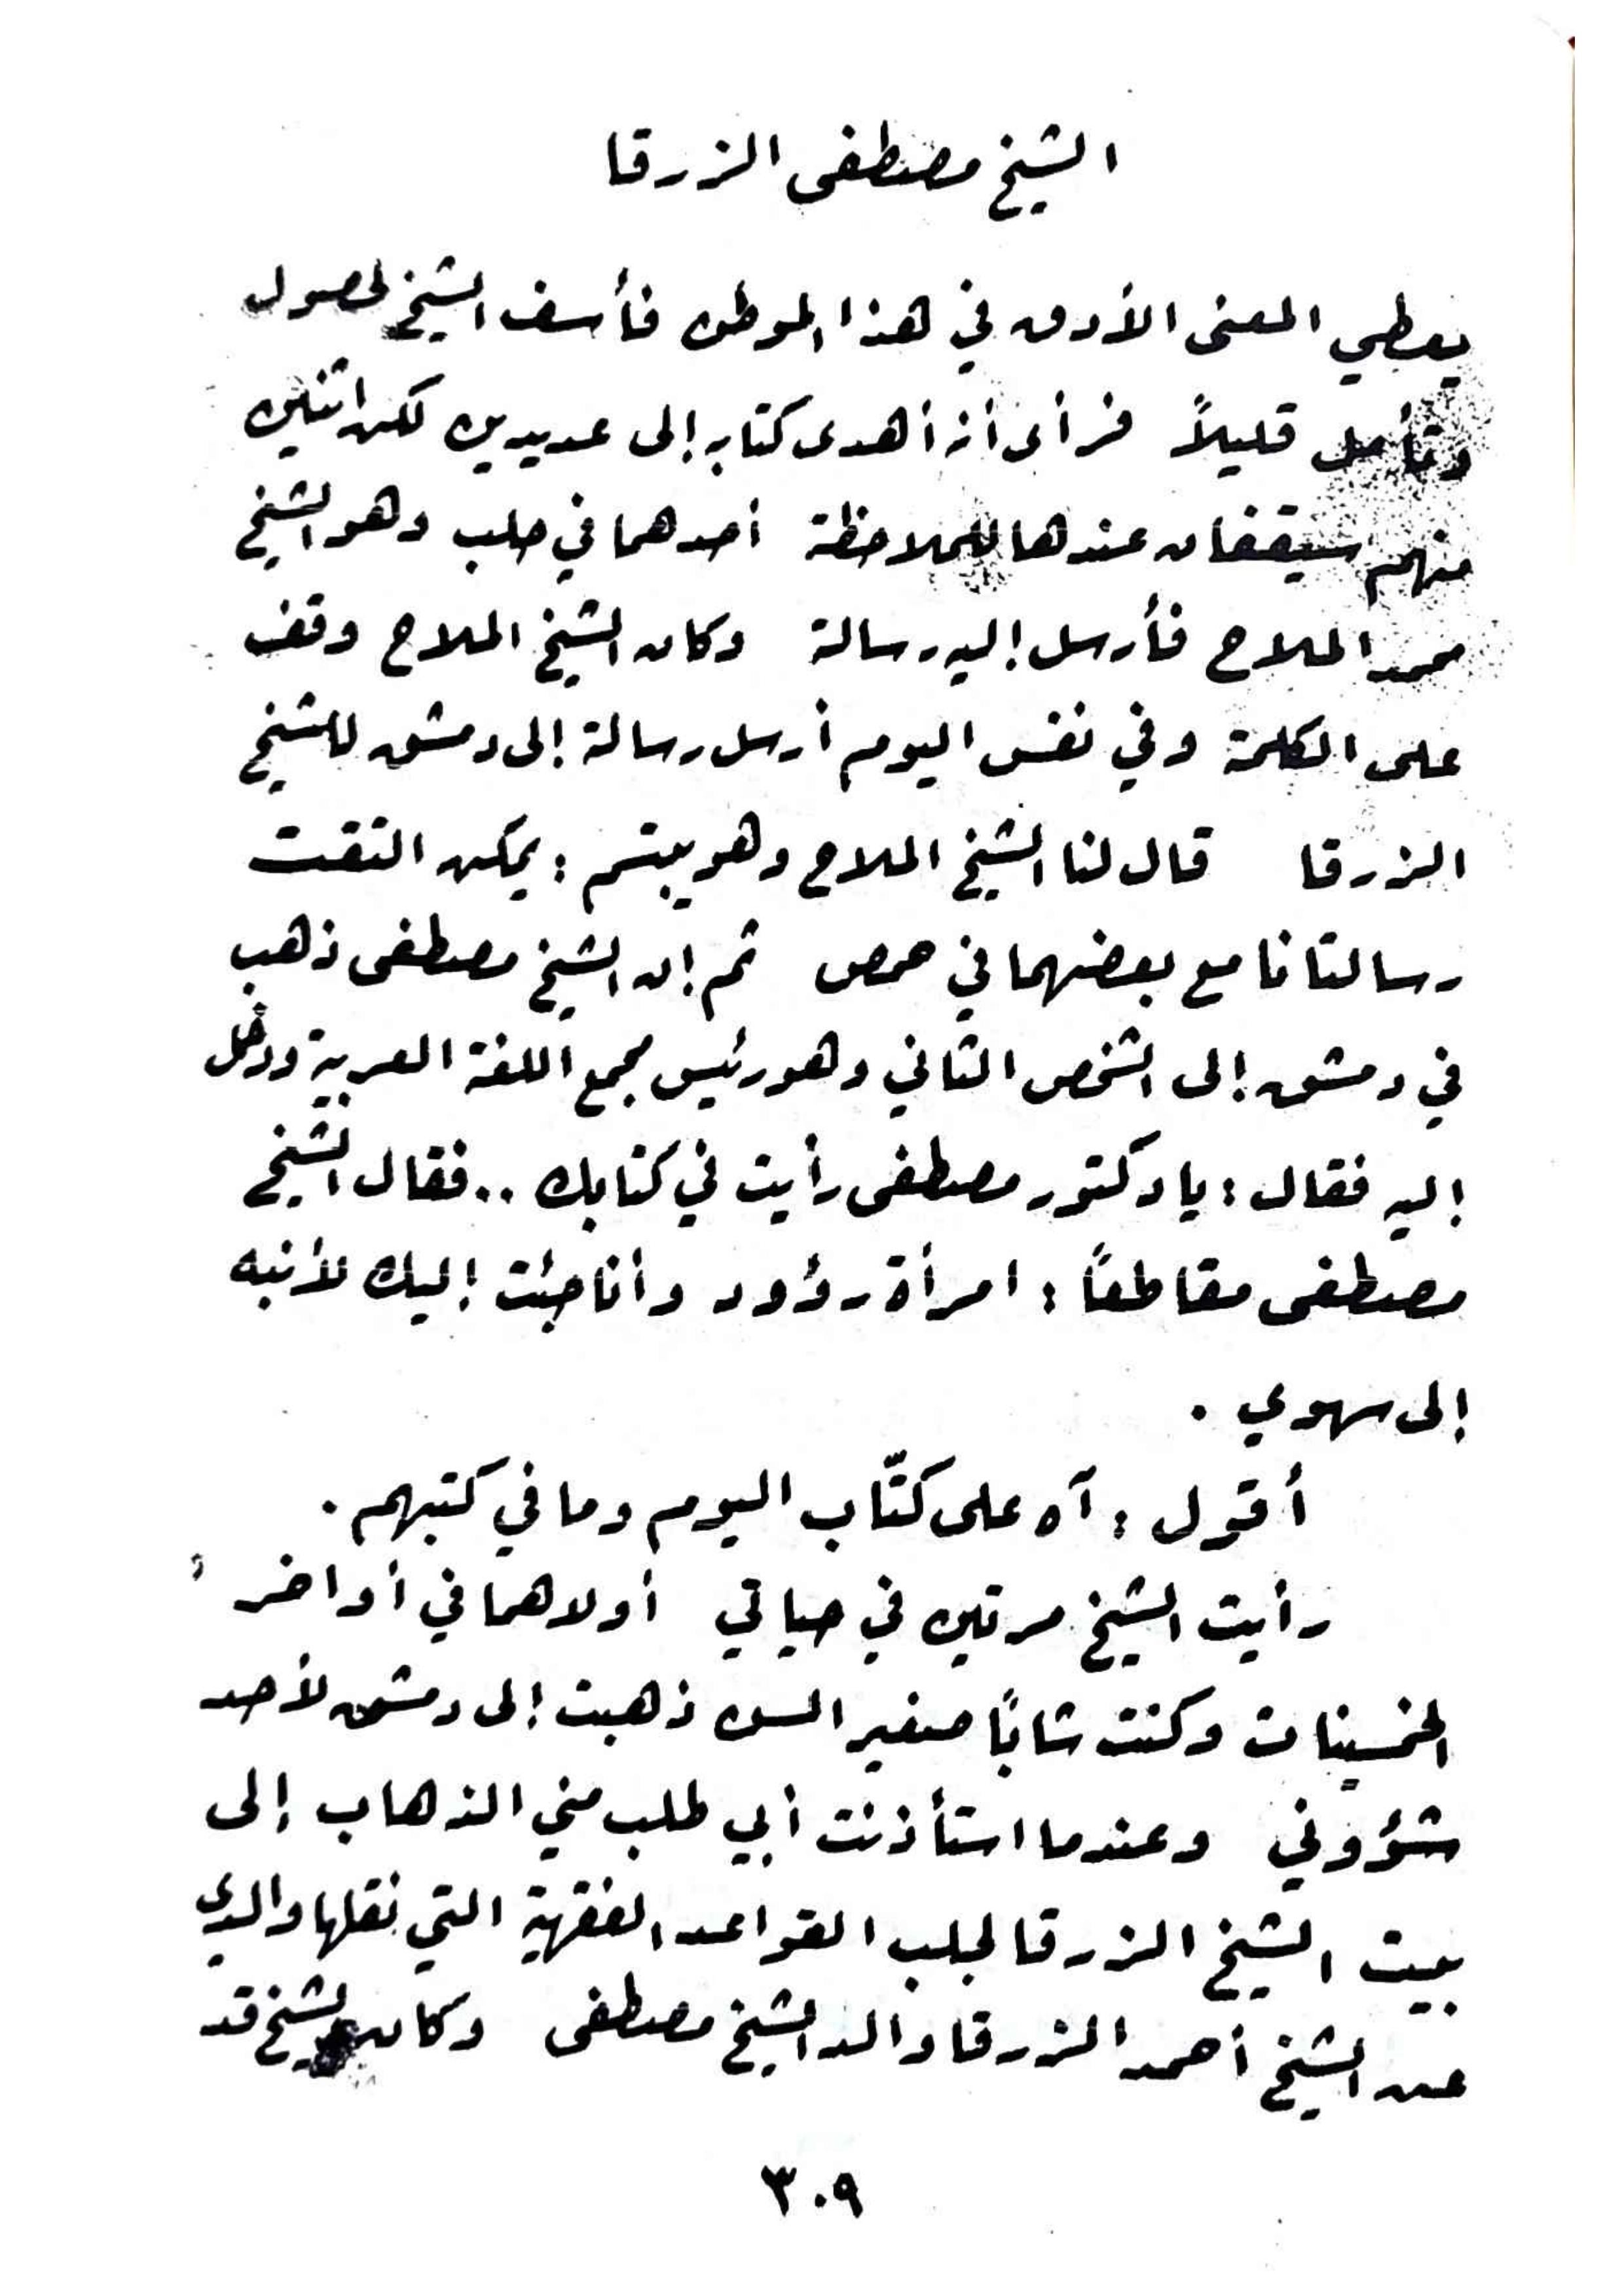 الشيخ مصطفى الزرقا
يعطي المعنى الأدق في هذا الموطن فأسف الشيخ لحصول
وتأمل قليلاً فرأى أنه أهدى كتابه إلى عديدين لكن اثنين
منهم سيقفان عندها للملاحظة أحدهما في حلب وهو الشيخ
محمد الملاح فأرسل إليه رسالة وكان الشيخ الملاح وقف
على الكلمة وفي نفس اليوم أرسل رسالة إلى دمشق للشيخ
الزرقا قال لنا الشيخ الملاح وهو يبتسم : يمكن التقت
رسالتانا مع بعضهما في حمص ثم إن الشيخ مصطفى ذهب
في دمشق إلى الشخص الثاني وهو رئيس مجمع اللغة العربية ودخل
إليه فقال : يا دكتور مصطفى رأيت في كتابك .. فقال الشيخ
مصطفى مقاطعاً : امرأة رؤود وأنا جئت إليك لأنبه
إلى سهوي .
أقول : آه على كتّاب اليوم وما في كتبهم .
رأيت الشيخ مرتين في حياتي أولاهما في أواخر
الخمسينات وكنت شاباً صغير السن ذهبت إلى دمشق لأحد
شؤوني وعندما استأذنت أبي طلب مني الذهاب إلى
بيت الشيخ الزرقا لجلب القواعد الفقهية التي نقلها والدي
عن الشيخ أحمد الزرقا والد الشيخ مصطفى وكان الشيخ قد
٣٠٩